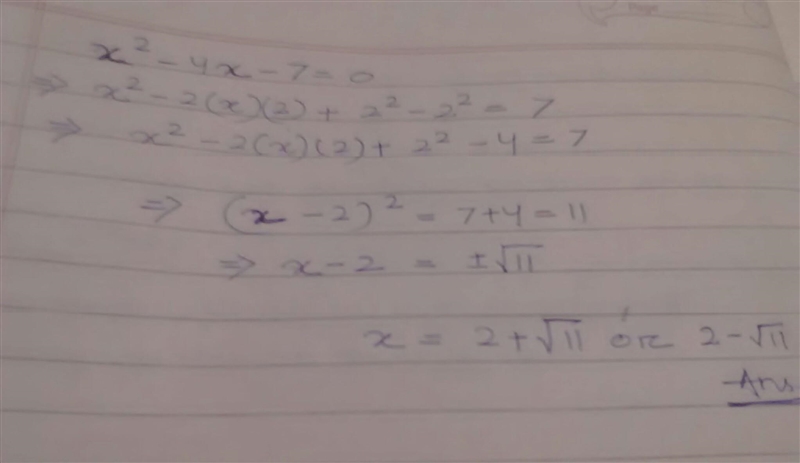 x² - 4x - 7 = 0
⇒ x² - 2(x)(2) + 2² - 2² = 7
⇒ x² - 2(x)(2) + 2² - 4 = 7
⇒ (x - 2)² = 7 + 4 = 11
⇒ x - 2 = ±√11
x = 2 + √11 or 2 - √11
Ans